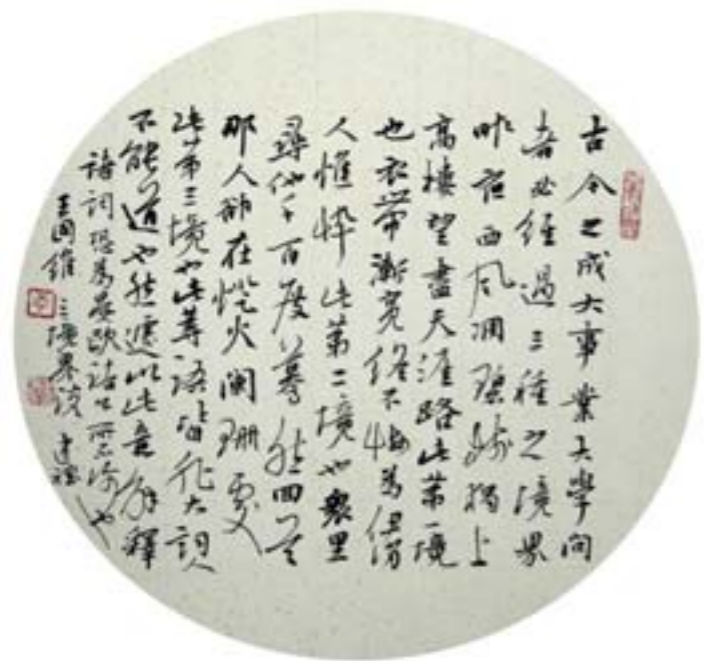 古今之成大事業大學問
者必經過三種之境界
昨夜西风凋碧树獨上
高樓望盡天涯路此第一境
也衣带漸宽终不悔为伊消
人憔悴此第二境也衆里
尋他千百度蓦然回首
那人卻在燈火闌珊處
此第三境也此等语皆非大詞人
不能道也然遽以此意解釋
诸词恐为晏欧诸公所不许也
王國維 三境界说 建